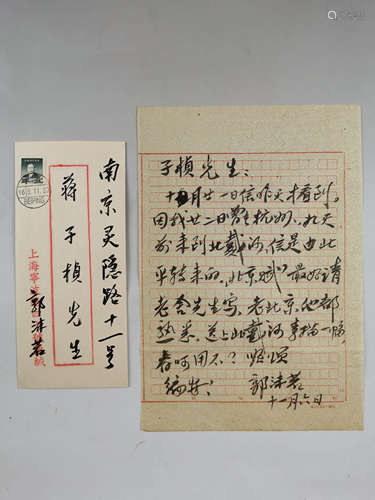 南京灵隐路十一号
蒋子桢先生
郭沫若
BEIJING
子桢先生：
十月廿一日信昨天才看到，
因我廿二日曾去杭州，几天
前来到北戴河，信是由北
平转来的，“北京赋”最好请
老舍先生写，老北京，他都
熟悉，送上北戴河素描一张，
看可用不？顺颂
编安！
郭沫若
十一月六日